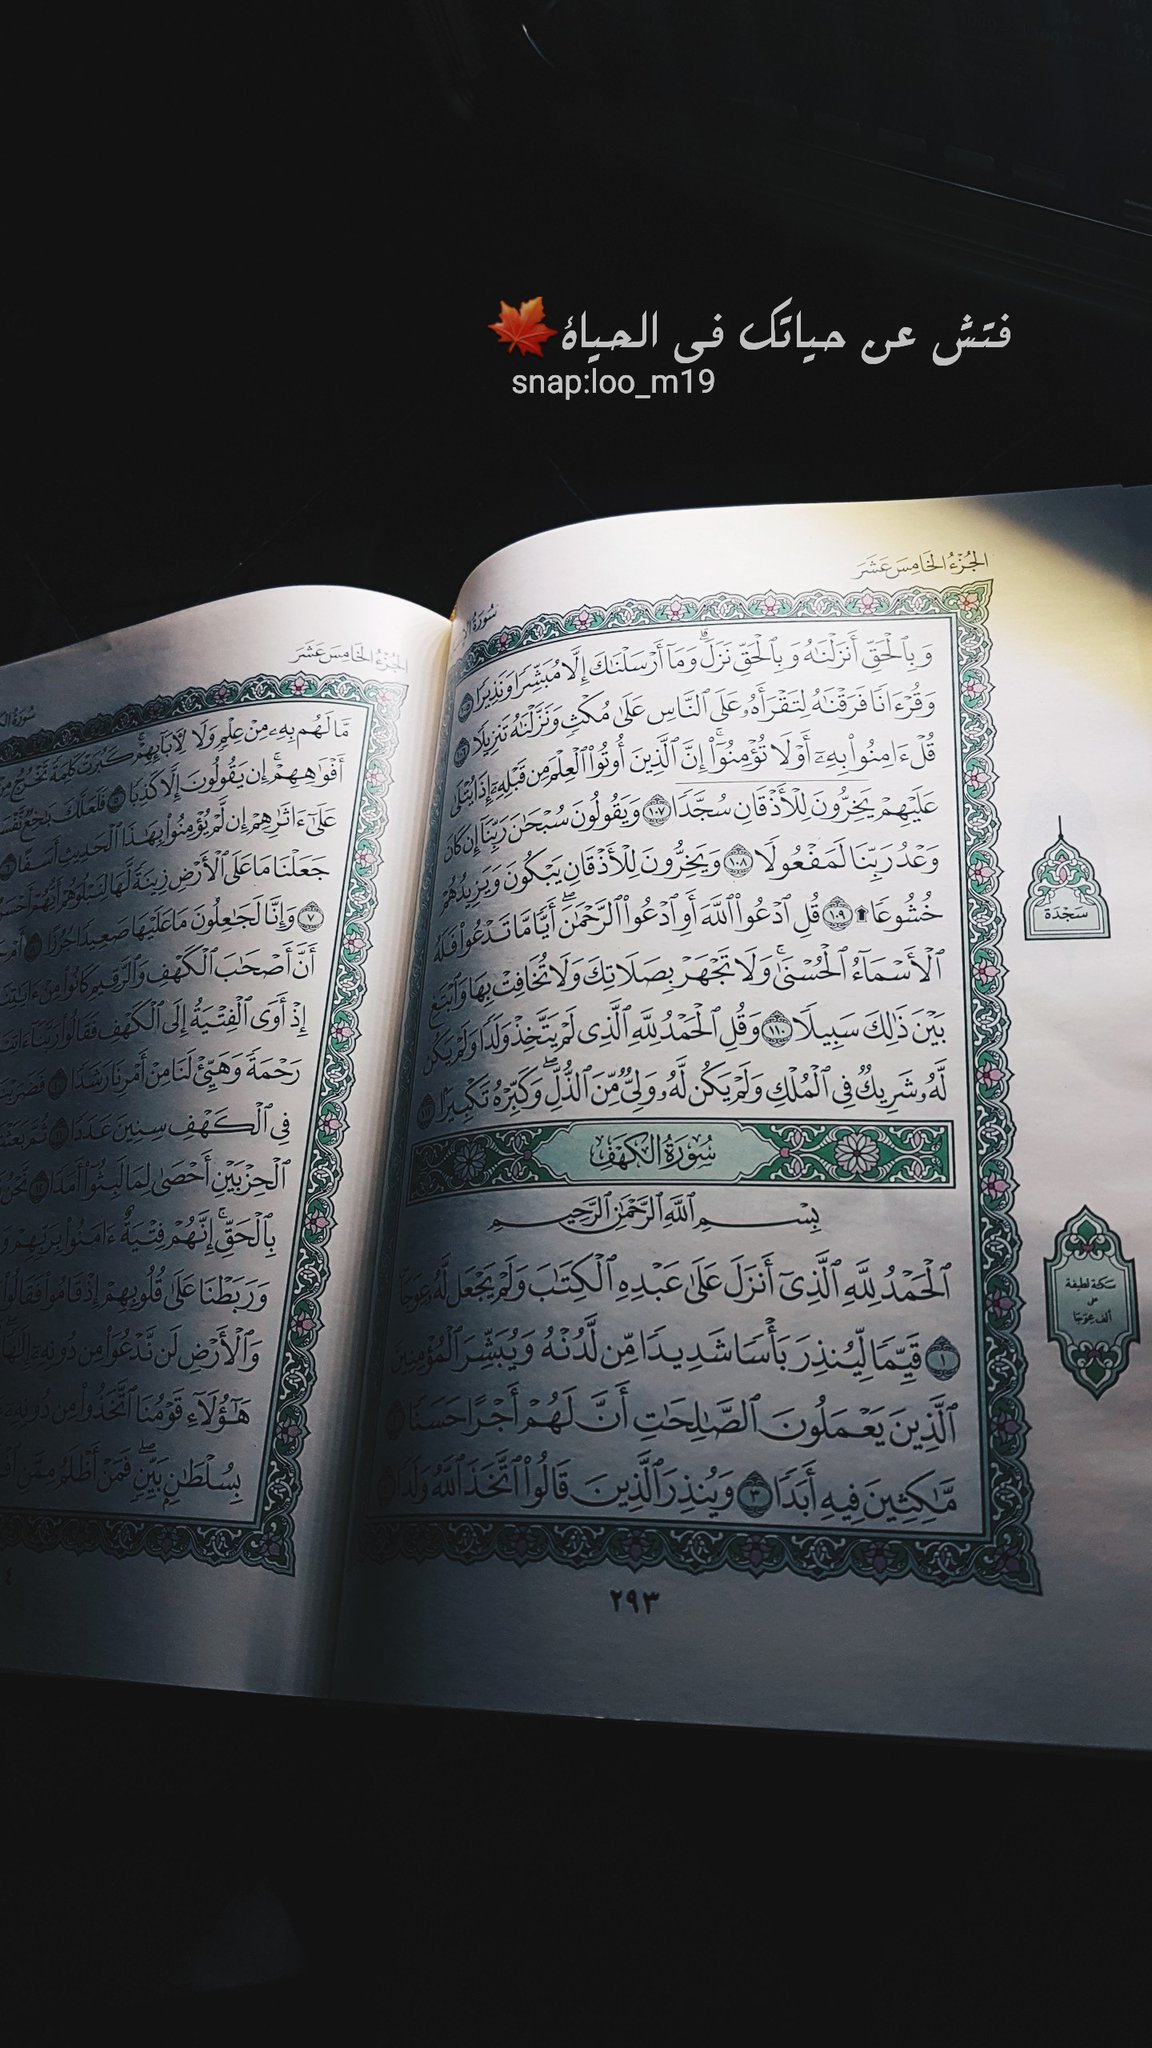 فتش عن حياتك في الحياة
snap:loo_m19
الجزء الخامس عشر
سورة
وَبِٱلْحَقِّ أَنزَلْنَٰهُ وَبِٱلْحَقِّ نَزَلَ ۗ وَمَآ أَرْسَلْنَٰكَ إِلَّا مُبَشِّرًا وَنَذِيرًا ١٠٥
وَقُرْءَانًا فَرَقْنَٰهُ لِتَقْرَأَهُۥ عَلَى ٱلنَّاسِ عَلَىٰ مُكْثٍ وَنَزَّلْنَٰهُ تَنزِيلًا ١٠٦
قُلْ ءَامِنُوا۟ بِهِۦٓ أَوْ لَا تُؤْمِنُوٓا۟ ۚ إِنَّ ٱلَّذِينَ أُوتُوا۟ ٱلْعِلْمَ مِن قَبْلِهِۦٓ إِذَا يُتْلَىٰ
عَلَيْهِمْ يَخِرُّونَ لِلْأَذْقَانِ سُجَّدًا ١٠٧ وَيَقُولُونَ سُبْحَٰنَ رَبِّنَآ إِن كَانَ
وَعْدُ رَبِّنَا لَمَفْعُولًا ١٠٨ وَيَخِرُّونَ لِلْأَذْقَانِ يَبْكُونَ وَيَزِيدُهُمْ
خُشُوعًا ۩ ١٠٩ قُلِ ٱدْعُوا۟ ٱللَّهَ أَوِ ٱدْعُوا۟ ٱلرَّحْمَٰنَ ۖ أَيًّا مَّا تَدْعُوا۟ فَلَهُ
ٱلْأَسْمَآءُ ٱلْحُسْنَىٰ ۚ وَلَا تَجْهَرْ بِصَلَاتِكَ وَلَا تُخَافِتْ بِهَا وَٱبْتَغِ
بَيْنَ ذَٰلِكَ سَبِيلًا ١١٠ وَقُلِ ٱلْحَمْدُ لِلَّهِ ٱلَّذِى لَمْ يَتَّخِذْ وَلَدًا وَلَمْ يَكُن
لَّهُۥ شَرِيكٌ فِى ٱلْمُلْكِ وَلَمْ يَكُن لَّهُۥ وَلِىٌّ مِّنَ ٱلذُّلِّ ۖ وَكَبِّرْهُ تَكْبِيرًۢا ١١١
سُورَةُ الكَهْفِ
بِسْمِ ٱللَّهِ ٱلرَّحْمَٰنِ ٱلرَّحِيمِ
ٱلْحَمْدُ لِلَّهِ ٱلَّذِىٓ أَنزَلَ عَلَىٰ عَبْدِهِ ٱلْكِتَٰبَ وَلَمْ يَجْعَل لَّهُۥ عِوَجَا
١ قَيِّمًا لِّيُنذِرَ بَأْسًا شَدِيدًا مِّن لَّدُنْهُ وَيُبَشِّرَ ٱلْمُؤْمِنِينَ
ٱلَّذِينَ يَعْمَلُونَ ٱلصَّٰلِحَٰتِ أَنَّ لَهُمْ أَجْرًا حَسَنًا ٢
مَّٰكِثِينَ فِيهِ أَبَدًا ٣ وَيُنذِرَ ٱلَّذِينَ قَالُوا۟ ٱتَّخَذَ ٱللَّهُ وَلَدًا ٤
٢٩٣
سَجْدَة
سكتة لطيفة
على
ألف عِوَجَا
الجزء الخامس عشر
مَّا لَهُم بِهِۦ مِنْ عِلْمٍ وَلَا لِءَابَآئِهِمْ ۚ كَبُرَتْ كَلِمَةً تَخْرُجُ مِنْ
أَفْوَٰهِهِمْ ۚ إِن يَقُولُونَ إِلَّا كَذِبًا ٥ فَلَعَلَّكَ بَٰخِعٌ نَّفْسَكَ
عَلَىٰٓ ءَاثَٰرِهِمْ إِن لَّمْ يُؤْمِنُوا۟ بِهَٰذَا ٱلْحَدِيثِ أَسَفًا ٦
جَعَلْنَا مَا عَلَى ٱلْأَرْضِ زِينَةً لَّهَا لِنَبْلُوَهُمْ أَيُّهُمْ أَحْسَنُ
٧ وَإِنَّا لَجَٰعِلُونَ مَا عَلَيْهَا صَعِيدًا جُرُزًا ٨
أَنَّ أَصْحَٰبَ ٱلْكَهْفِ وَٱلرَّقِيمِ كَانُوا۟ مِنْ ءَايَٰتِنَا
إِذْ أَوَى ٱلْفِتْيَةُ إِلَى ٱلْكَهْفِ فَقَالُوا۟ رَبَّنَآ
رَحْمَةً وَهَيِّئْ لَنَا مِنْ أَمْرِنَا رَشَدًا ١٠ فَضَرَبْنَا
فِى ٱلْكَهْفِ سِنِينَ عَدَدًا ١١ ثُمَّ
ٱلْحِزْبَيْنِ أَحْصَىٰ لِمَا لَبِثُوٓا۟ أَمَدًا ١٢ نَّحْنُ
بِٱلْحَقِّ ۚ إِنَّهُمْ فِتْيَةٌ ءَامَنُوا۟ بِرَبِّهِمْ
وَرَبَطْنَا عَلَىٰ قُلُوبِهِمْ إِذْ قَامُوا۟ فَقَالُوا۟
وَٱلْأَرْضِ لَن نَّدْعُوَا۟ مِن دُونِهِۦٓ إِلَٰهًا
هَٰٓؤُلَآءِ قَوْمُنَا ٱتَّخَذُوا۟ مِن دُونِهِۦٓ
بِسُلْطَٰنٍۭ بَيِّنٍ ۖ فَمَنْ أَظْلَمُ مِمَّنِ